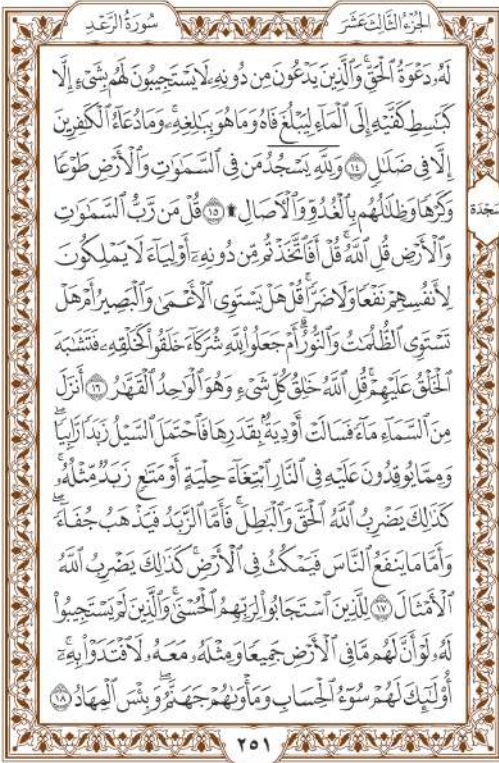 سُورَةُ الرَّعْدِ
الجُزْءُ الثَّالِثَ عَشَرَ
لَهُۥ دَعْوَةُ ٱلْحَقِّۖ وَٱلَّذِينَ يَدْعُونَ مِن دُونِهِۦ لَا يَسْتَجِيبُونَ لَهُم بِشَىْءٍ إِلَّا
كَبَٰسِطِ كَفَّيْهِ إِلَى ٱلْمَآءِ لِيَبْلُغَ فَاهُ وَمَا هُوَ بِبَٰلِغِهِۦۚ وَمَا دُعَآءُ ٱلْكَٰفِرِينَ
إِلَّا فِى ضَلَٰلٍ ١٤ وَلِلَّهِ يَسْجُدُ مَن فِى ٱلسَّمَٰوَٰتِ وَٱلْأَرْضِ طَوْعًا
وَكَرْهًا وَظِلَٰلُهُم بِٱلْغُدُوِّ وَٱلْءَاصَالِ ۩ ١٥ قُلْ مَن رَّبُّ ٱلسَّمَٰوَٰتِ
سَجْدَة
وَٱلْأَرْضِ قُلِ ٱللَّهُۚ قُلْ أَفَٱتَّخَذْتُم مِّن دُونِهِۦٓ أَوْلِيَآءَ لَا يَمْلِكُونَ
لِأَنفُسِهِمْ نَفْعًا وَلَا ضَرًّاۚ قُلْ هَلْ يَسْتَوِى ٱلْأَعْمَىٰ وَٱلْبَصِيرُ أَمْ هَلْ
تَسْتَوِى ٱلظُّلُمَٰتُ وَٱلنُّورُۗ أَمْ جَعَلُوا۟ لِلَّهِ شُرَكَآءَ خَلَقُوا۟ كَخَلْقِهِۦ فَتَشَٰبَهَ
ٱلْخَلْقُ عَلَيْهِمْۚ قُلِ ٱللَّهُ خَٰلِقُ كُلِّ شَىْءٍ وَهُوَ ٱلْوَٰحِدُ ٱلْقَهَّٰرُ ١٦ أَنزَلَ
مِنَ ٱلسَّمَآءِ مَآءً فَسَالَتْ أَوْدِيَةٌۢ بِقَدَرِهَا فَٱحْتَمَلَ ٱلسَّيْلُ زَبَدًا رَّابِيًاۚ
وَمِمَّا يُوقِدُونَ عَلَيْهِ فِى ٱلنَّارِ ٱبْتِغَآءَ حِلْيَةٍ أَوْ مَتَٰعٍ زَبَدٌ مِّثْلُهُۥۚ
كَذَٰلِكَ يَضْرِبُ ٱللَّهُ ٱلْحَقَّ وَٱلْبَٰطِلَۚ فَأَمَّا ٱلزَّبَدُ فَيَذْهَبُ جُفَآءًۖ
وَأَمَّا مَا يَنفَعُ ٱلنَّاسَ فَيَمْكُثُ فِى ٱلْأَرْضِۚ كَذَٰلِكَ يَضْرِبُ ٱللَّهُ
ٱلْأَمْثَالَ ١٧ لِلَّذِينَ ٱسْتَجَابُوا۟ لِرَبِّهِمُ ٱلْحُسْنَىٰۚ وَٱلَّذِينَ لَمْ يَسْتَجِيبُوا۟
لَهُۥ لَوْ أَنَّ لَهُم مَّا فِى ٱلْأَرْضِ جَمِيعًا وَمِثْلَهُۥ مَعَهُۥ لَٱفْتَدَوْا۟ بِهِۦٓۚ
أُو۟لَٰٓئِكَ لَهُمْ سُوٓءُ ٱلْحِسَابِ وَمَأْوَىٰهُمْ جَهَنَّمُۖ وَبِئْسَ ٱلْمِهَادُ ١٨
٢٥١